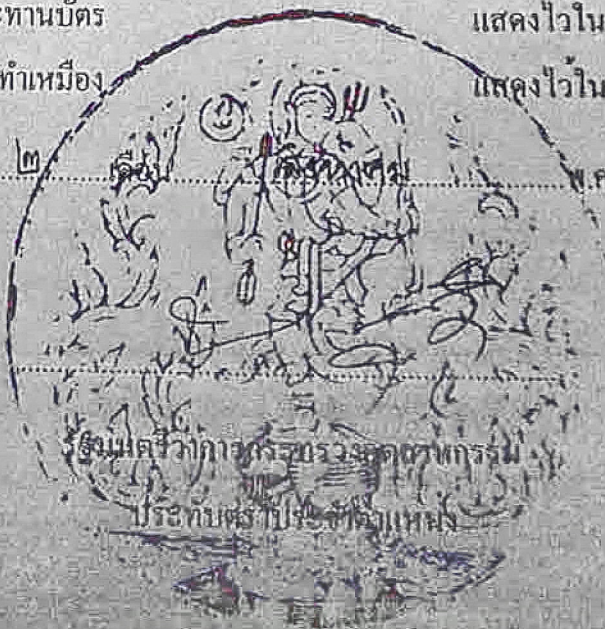 ะทานบัตร แสดงไว้ใน
ทำเหมือง แสดงไว้ใน
๒ เดือน สิงหาคม พ.ศ
รัฐมนตรีว่าการกระทรวงอุตสาหกรรม
ประทับตราประจำตำแหน่ง